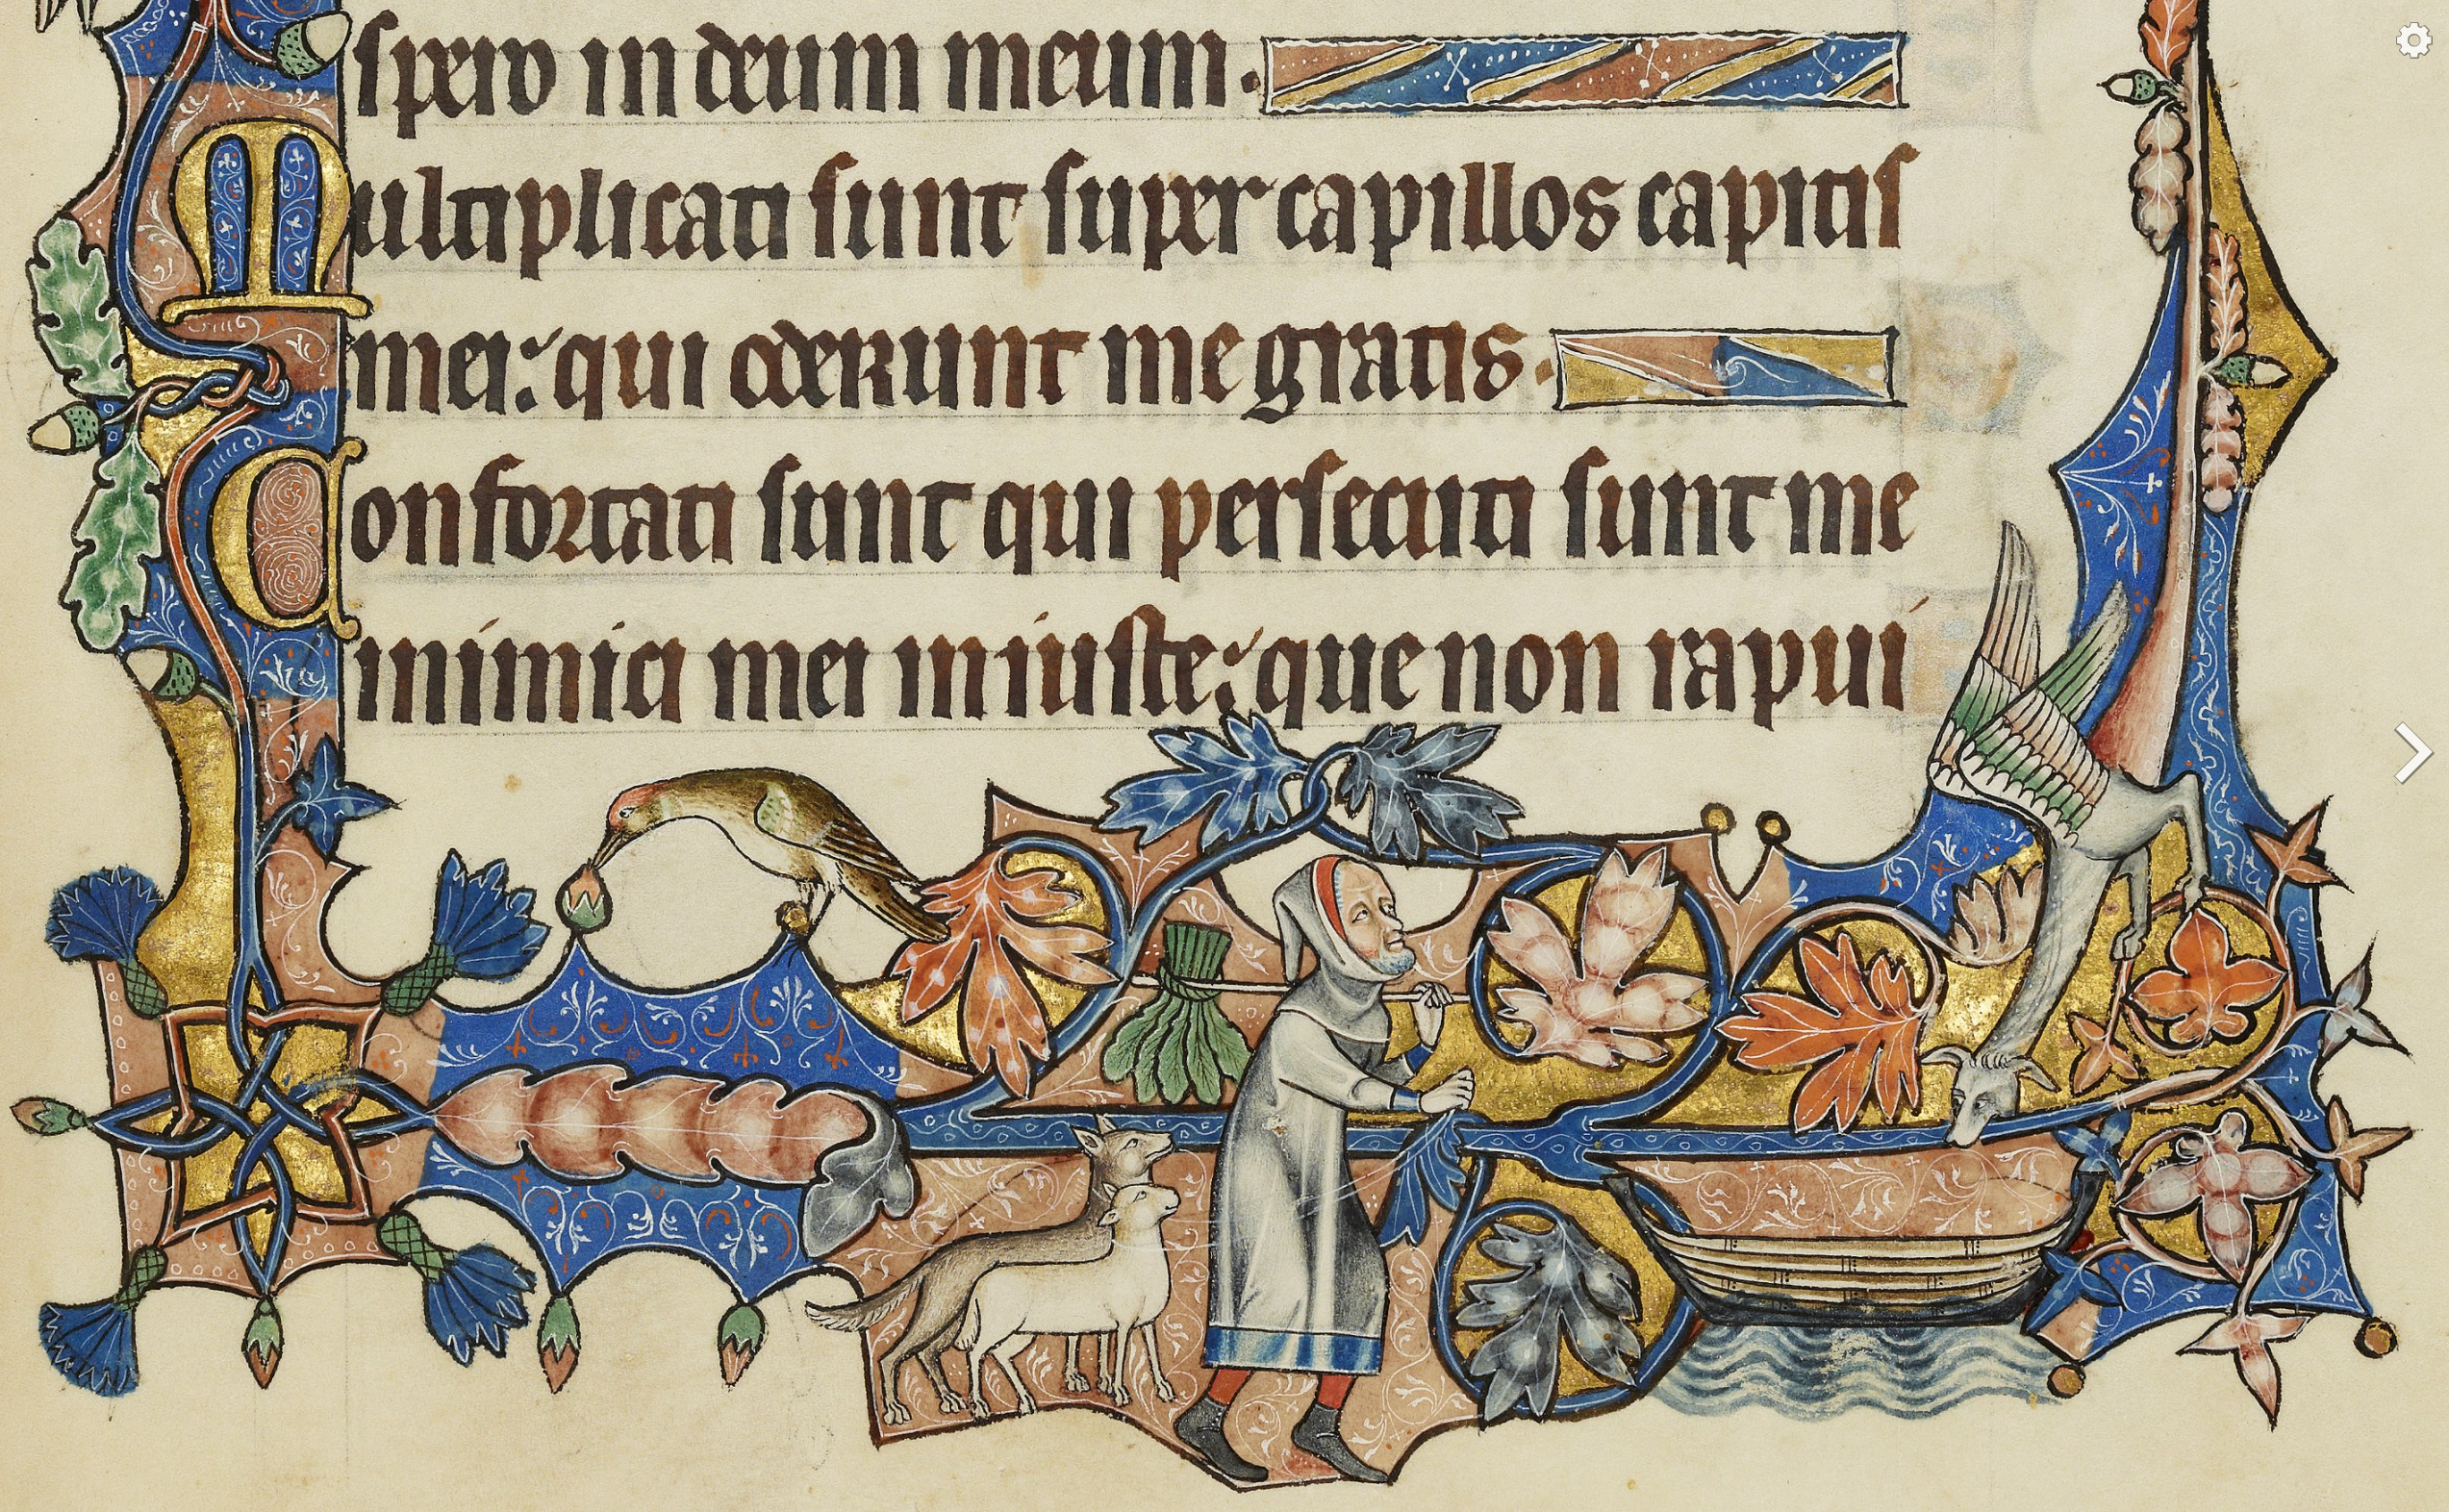 spero in deum meum.
Multiplicati sunt super capillos capitis
mei: qui oderunt me gratis.
Confortati sunt qui persecuti sunt me
inimici mei iniuste: que non rapui